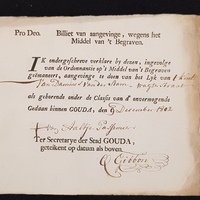 Pro Deo. Billiet van aangevinge, wegens het
Middel van 't Begraven.
IK ondergeschreve verklare by dezen, ingevolge
van de Ordonnantie op 't Middel van 't Begraven
geëmaneert, aangevinge te doen van het Lyk van 't kind
van
als gehorende onder de Classis van d'onvermogende
Gedaan binnen GOUDA, den 9 December 1802
Ter Secretarye der Stad GOUDA,
getekent op datum als boven.